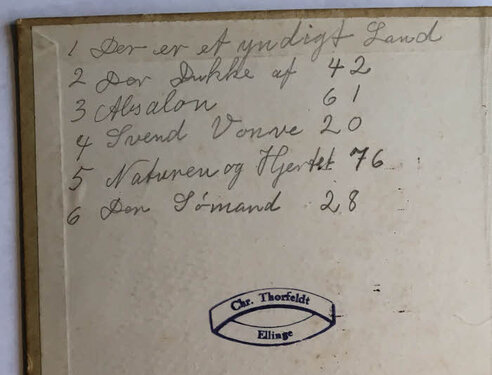 1 Der er et yndigt Land
2 Der Dukke af 42
3 Absalon 61
4 Svend Vonve 20
5 Naturen og Hjertet 76
6 Den Sømand 28
Chr. Thorfeldt
Ellinge